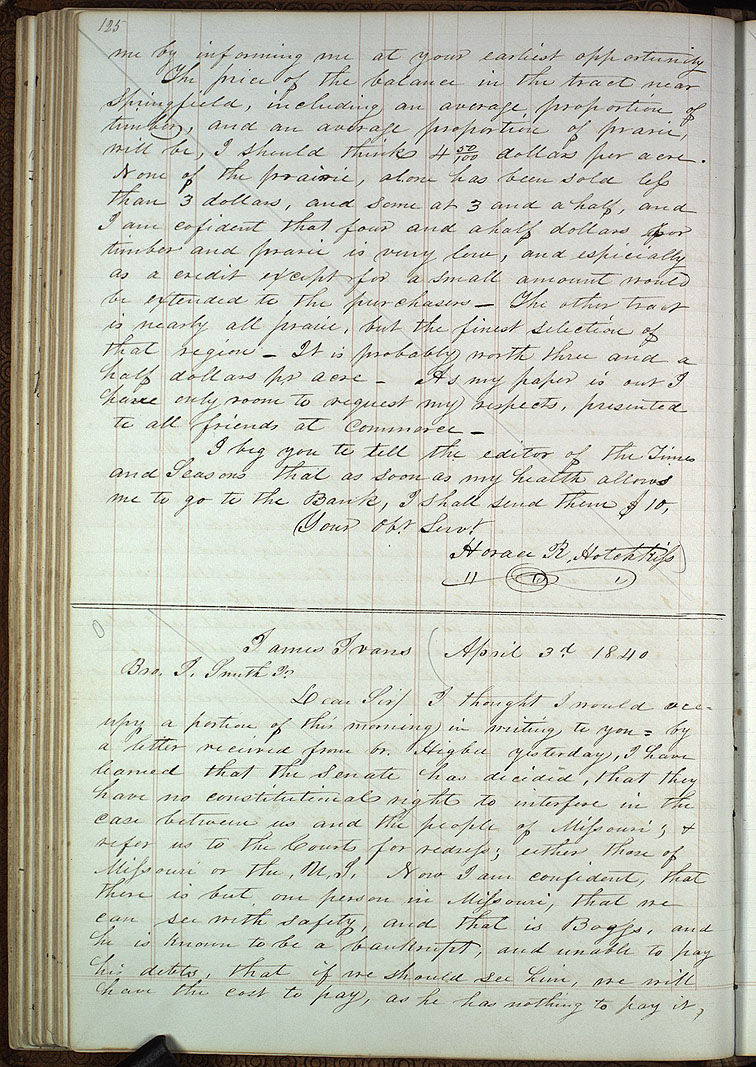 125
me by informing me at your earliest opportunity
The price of the balance in the tract near
Springfield, including an average proportion of
timber, and an average proportion of prarie,
will be, I should think 4 50/100 dollars per acre.
None of the prairie, alone has been sold less
than 3 dollars, and some at 3 and a half, and
I am cofident that four and a half dollars for
timber and prarie is very low, and especially
as a credit except for a small amount would
be extended to the purchasers — The other tract
is nearly all prarie, but the finest selection of
that region — It is probably worth three and a
half dollars pr acre — As my paper is out I
have only room to request my respects, presented
to all friends at Commerce —
I beg you to tell the editor of the Times
and Seasons that as soon as my health allows
me to go to the Bank, I shall send them $10,
Your Obt. Servt.
Horace R. Hotchkiss
James Ivans ( April 3d 1840
Bro. J. Smith Jr
Dear Sir/ I thought I would occ=
upy a portion of this morning in writing to you = by
a letter received from br. Higbee yesterday, I have
learned that the Senate has decided, that they
have no constitutional right to interfere in the
case between us and the people of Missouri; &
refer us to the Courts for redress; either those of
Missouri or the, M, I. Now I am confident, that
there is but one person in Missouri, that we
can see with safety and that is Boggs, and
he is known to be a bankrupt, and unable to pay
his debts, that if we should see him, we will
have the cost to pay, as he has nothing to pay it,